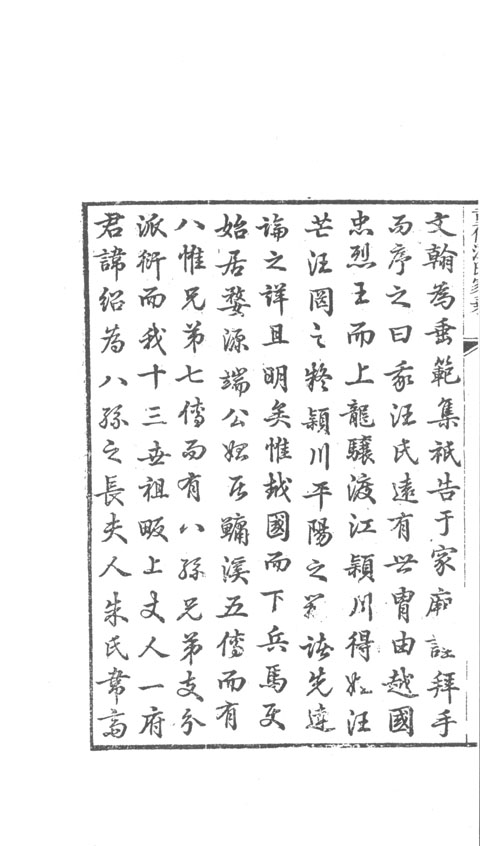 文翰為垂範集祇告于家廟註拜手
而序之曰我汪氏遠有世胄由越國
忠烈王而上龍驤渡江潁川得姓汪
芒汪罔之辨潁川平陽之異諸先達
論之詳且明矣惟越國而下兵馬使
始居婺源端公始居鱅溪五傳而有
八惟兄弟七傳而有八孫兄弟支分
派衍而我十三世祖畈上丈人一府
君諱紹為八孫之長夫人朱氏韋齋